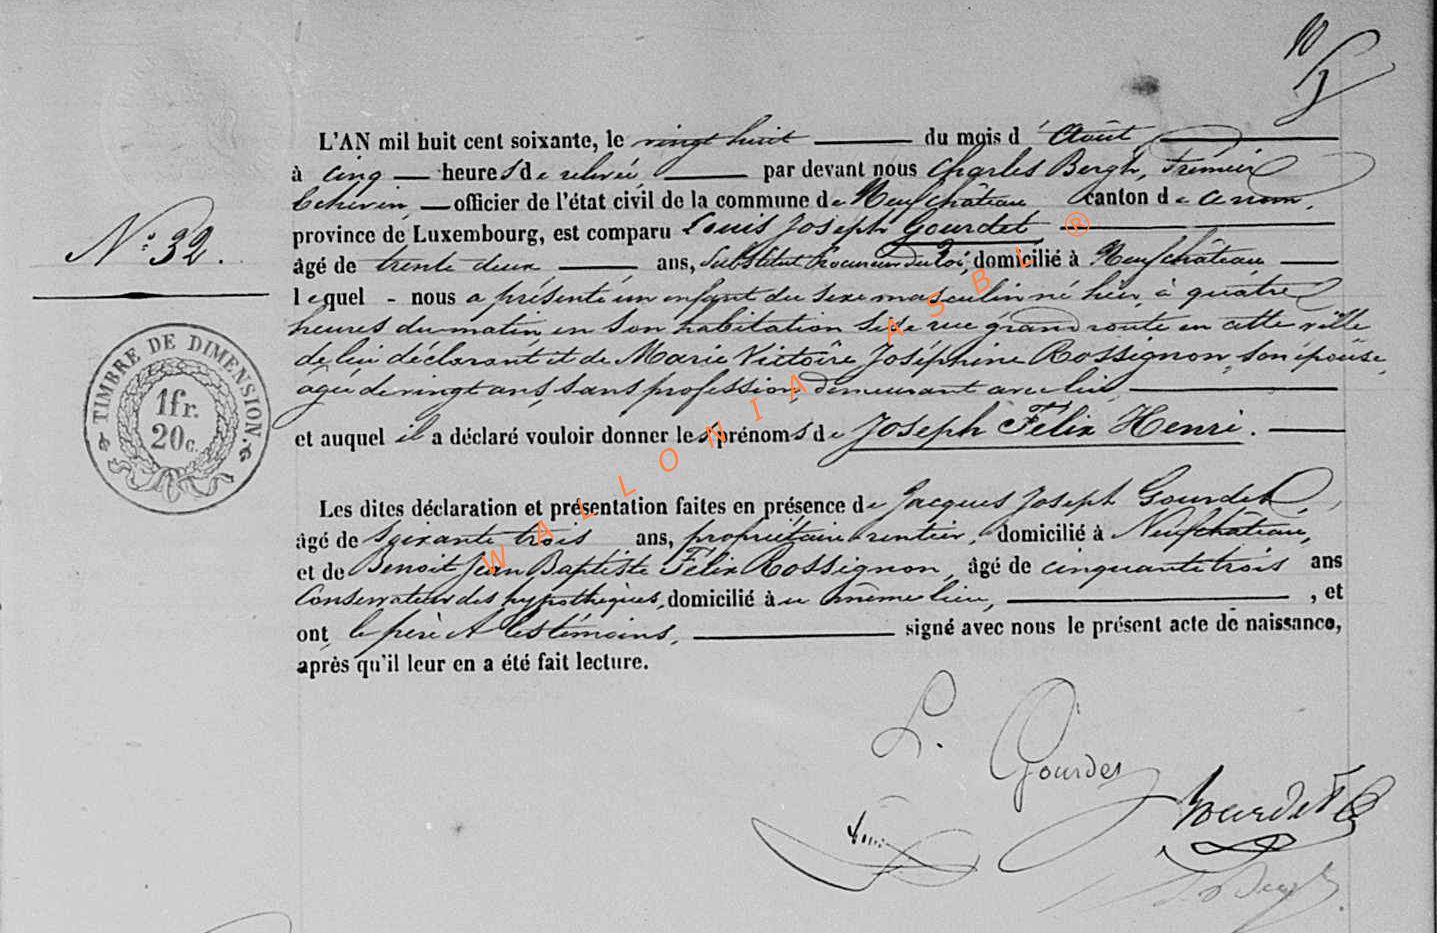 L'AN mil huit cent soixante, le vingt huit du mois d'Août,
à cinq heures de relevée par devant nous Charles Bergh, Premier
Echevin, officier de l'état civil de la commune de Neufchâteau canton de ce nom,
N.° 32.
province de Luxembourg, est comparu Louis Joseph Gourdet
âgé de trente deux ans, Substitut Procureur du Roi, domicilié à Neufchâteau
lequel - nous a présenté un enfant du sexe masculin né hier, à quatre
heures du matin en son habitation sise rue grand route en cette ville
de lui déclarant et de Marie Victoire Joséphine Rossignon, son épouse,
agée de vingt ans, sans profession, demeurant avec lui,
et auquel il a déclaré vouloir donner les prénoms de Joseph Félix Henri.
TIMBRE DE DIMENSION.
1fr.
20c.
Les dites déclaration et présentation faites en présence de Jacques Joseph Gourdet,
âgé de Soixante trois ans, propriétaire rentier, domicilié à Neufchâteau,
et de Benoit Jean Baptiste Félix Rossignon, âgé de cinquante trois ans
Conservateur des hypothèques, domicilié au même lieu, , et
ont le père et les témoins, signé avec nous le présent acte de naissance,
après qu'il leur en a été fait lecture.
L. Gourdet
Gourdet
WALLONIA ASBL ®